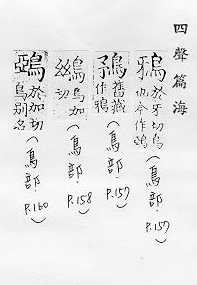 四聲篇海
鴉 於牙切烏也今作鵶(鳥部.P.157)
舊藏作鴉(鳥部.P.157)
烏加切(鳥部.P.158)
鵶 於加切鳥別名(鳥部.P.160)